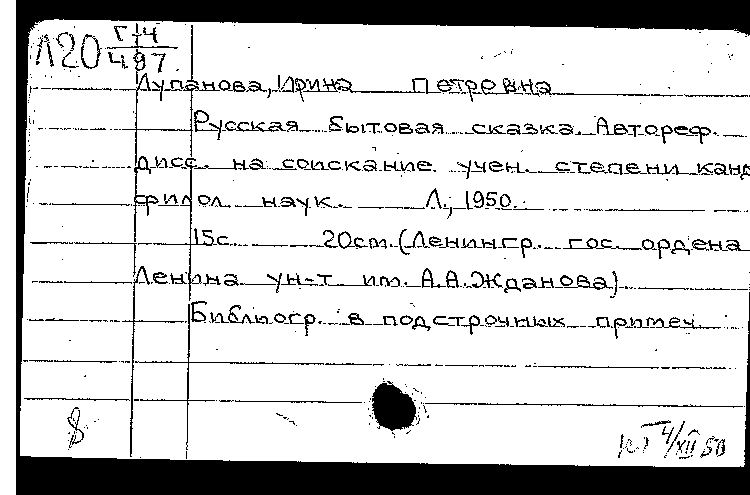 Л20 Г-4
497
Лупанова, Ирина Петровна
Русская бытовая сказка. Автореф.
дисс. на соискание учен. степени канд
филол наук. Л., 1950.
15с. 20см. (Ленингр. гос. ордена
Ленина ун-т им. А.А.Жданова)
Библиогр. в подстрочных примеч.
8
4/XII 50